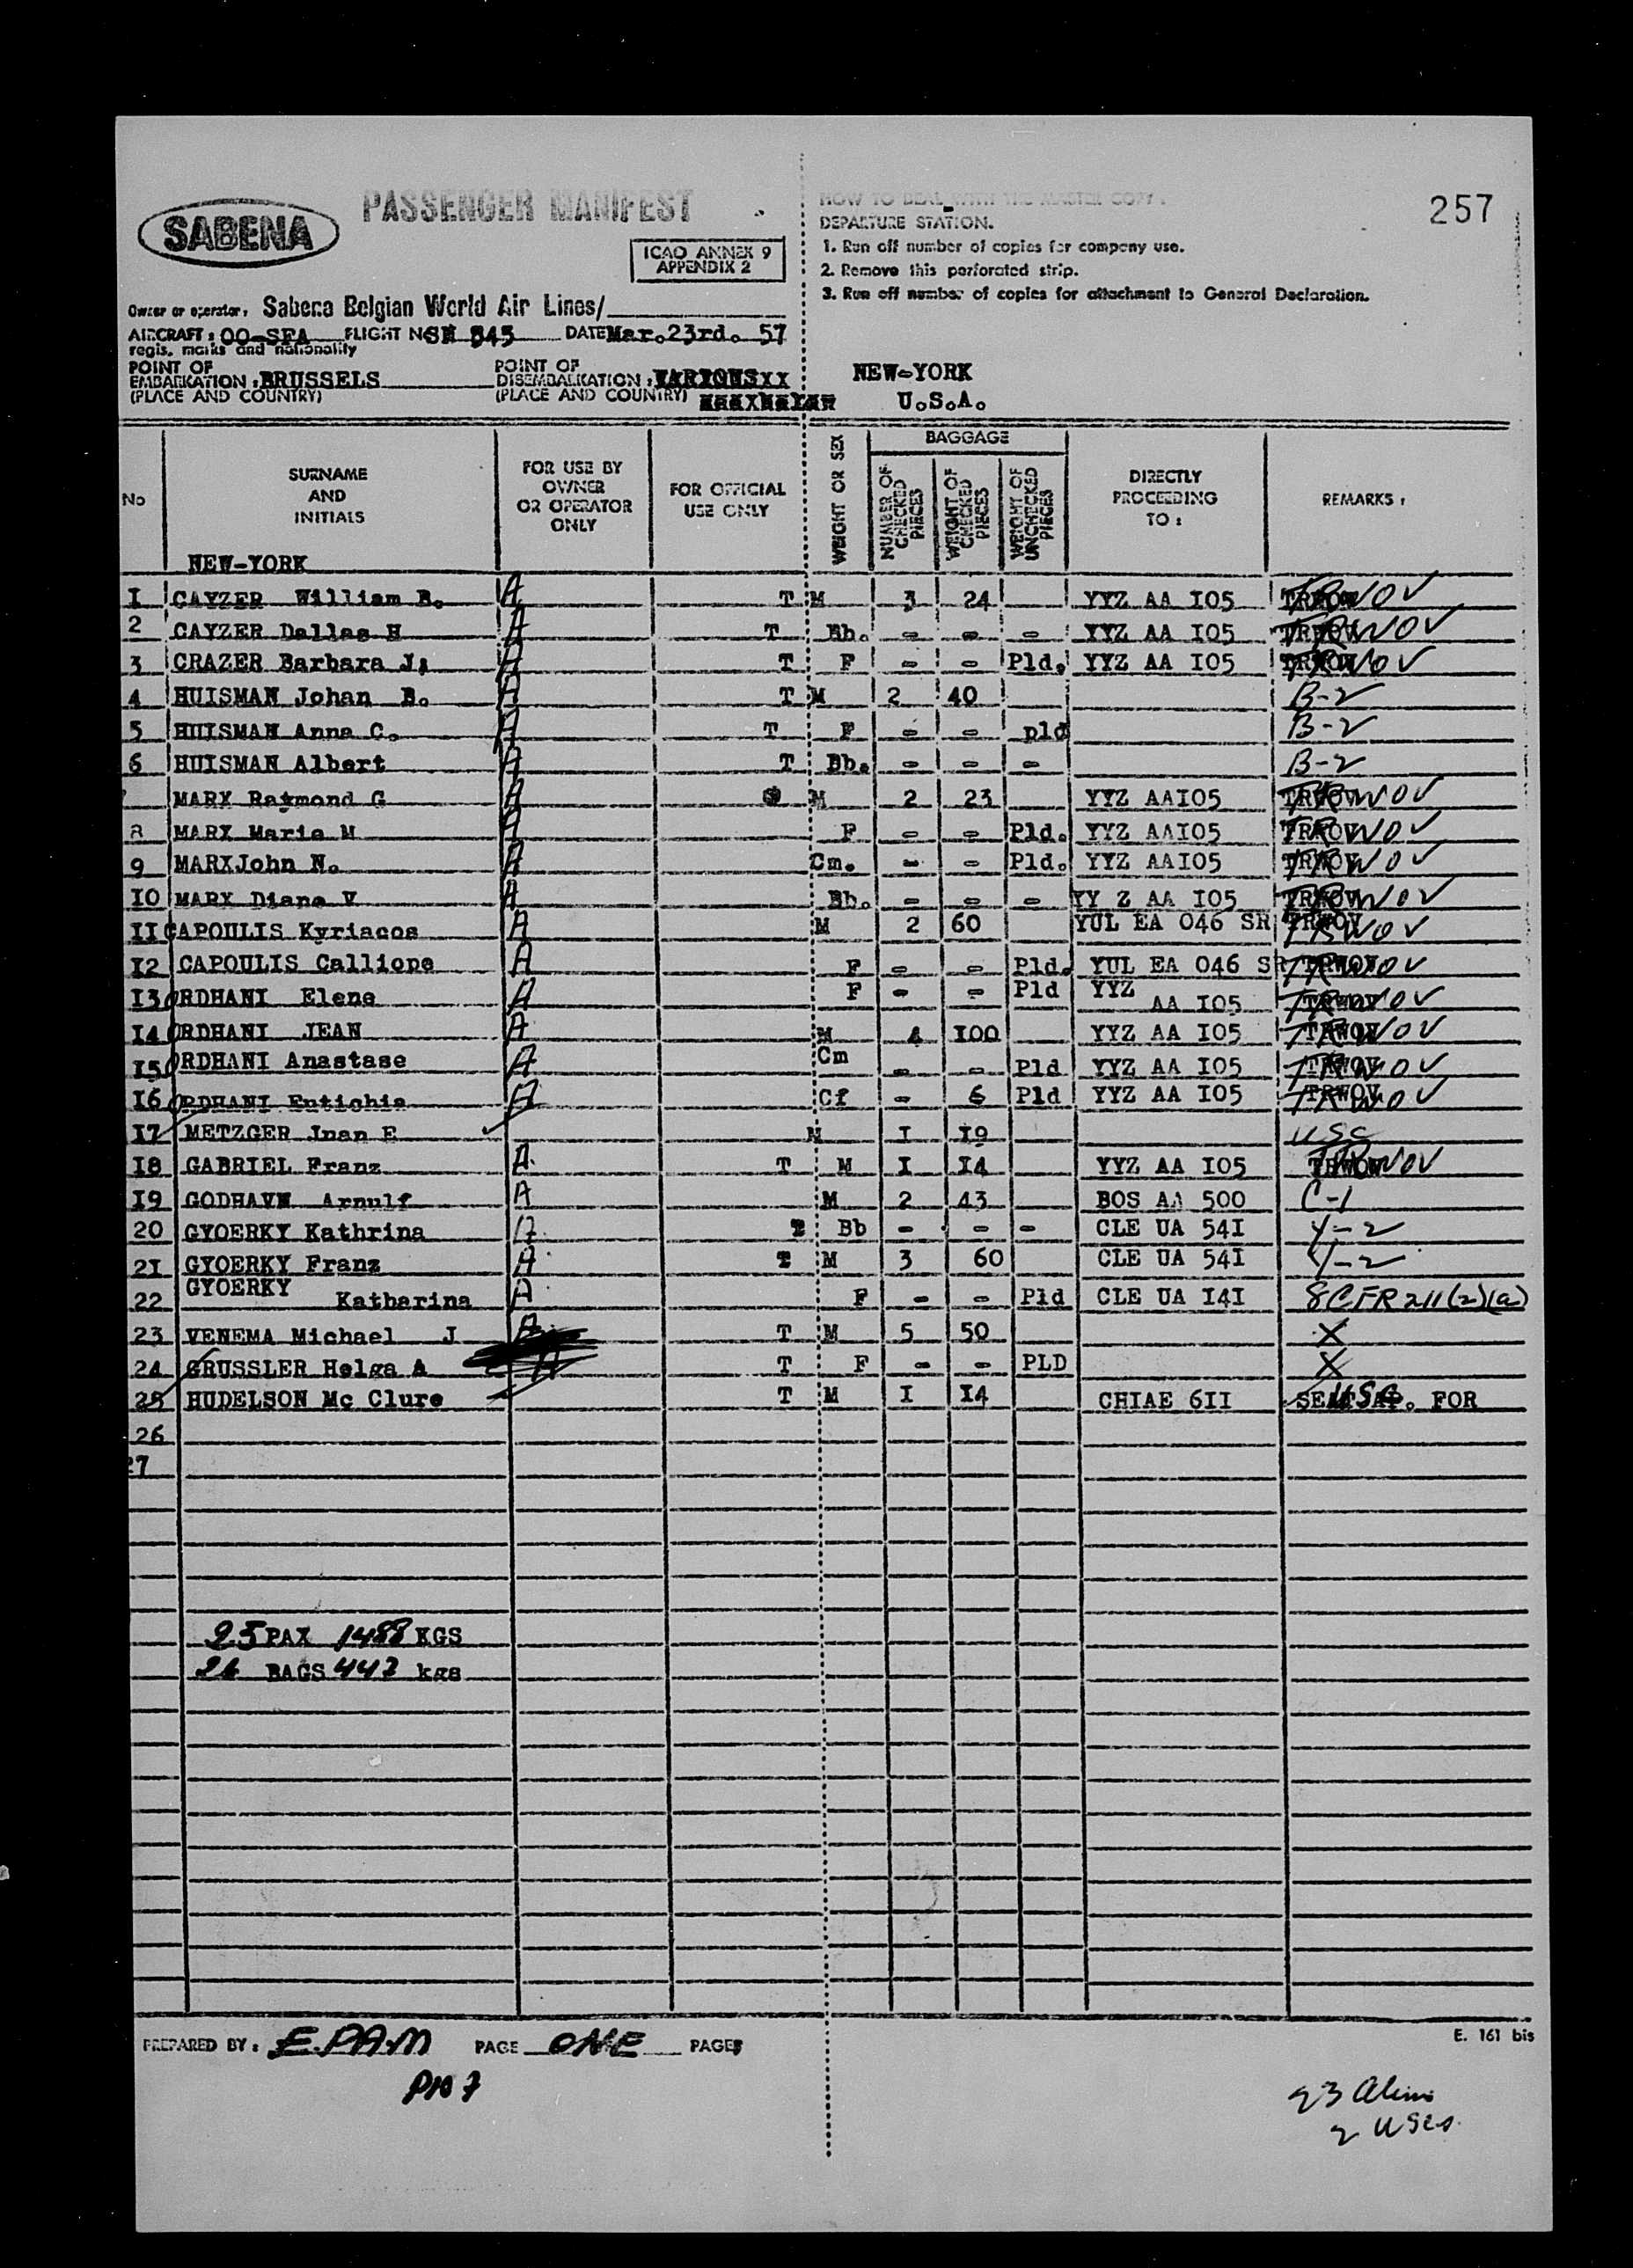 257
SABENA
PASSENGER MANIFEST
ICAO ANNEX 9
APPENDIX 2
HOW TO DEAL WITH THE MASTER COPY :
DEPARTURE STATION.
1. Run off number of copies for company use.
2. Remove this perforated strip.
3. Run off number of copies for attachment to General Declaration.
Owner or operator: Sabena Belgian World Air Lines/
AIRCRAFT : OO-SFA FLIGHT N SN 545 DATE Mar.23rd. 57
regis. marks and nationality
POINT OF EMBARKATION : BRUSSELS
(PLACE AND COUNTRY)
POINT OF DISEMBARKATION :
(PLACE AND COUNTRY)
NEW-YORK
U.S.A.
No
SURNAME AND INITIALS
FOR USE BY OWNER OR OPERATOR ONLY
FOR OFFICIAL USE ONLY
WEIGHT OR SEX
BAGGAGE
NUMBER OF CHECKED PIECES
WEIGHT OF CHECKED PIECES
WEIGHT OF UNCHECKED PIECES
DIRECTLY PROCEEDING TO :
REMARKS :
NEW-YORK
I CAYZER William B. A T M 3 24 YYZ AA I05 TRWOV
2 CAYZER Dallas H A T Bb. - - - YYZ AA I05 TRWOV
3 CRAZER Barbara J; A T F - - Pld. YYZ AA I05 TRWOV
4 HUISMAN Johan B. A T M 2 40 B-2
5 HUISMAN Anna C. A T F - - pld B-2
6 HUISMAN Albert A T Bb. - - - B-2
MARX Raymond G A M 2 23 YYZ AAI05 TRWOV
8 MARX Maria M A F - - Pld. YYZ AAI05 TRWOV
9 MARXJohn N. A Cm. - - Pld. YYZ AAI05 TRWOV
I0 MARX Diana V A Bb. - - - YY Z AA I05 TRWOV
II CAPOULIS Kyriacos A M 2 60 YUL EA 046 SR TRWOV
I2 CAPOULIS Calliope A F - - Pld. YUL EA 046 SR TRWOV
I3 ORDHANI Elena A F - - Pld YYZ AA I05 TRWOV
I4 ORDHANI JEAN A M 4 I00 YYZ AA I05 TRWOV
I5 ORDHANI Anastase A Cm - - Pld YYZ AA I05 TRWOV
I6 ORDHANI Eutichia A Cf - 6 Pld YYZ AA I05 TRWOV
I7 METZGER Juan E M I I9 USC
I8 GABRIEL Franz A T M I I4 YYZ AA I05 TRWOV
I9 GODHAVN Arnulf A M 2 43 BOS AA 500 C-1
20 GYOERKY Kathrina A T Bb - - - CLE UA 54I Y-2
2I GYOERKY Franz A T M 3 60 CLE UA 54I Y-2
22 GYOERKY Katharina A F - - Pld CLE UA I4I 8CFR211(2)(a)
23 VENEMA Michael J A T M 5 50 X
24 GRUSSLER Helga A A T F - - PLD X
25 HUDELSON Mc Clure T M I I4 CHIAE 6II USC FOR
26
27
25 PAX 1488 KGS
26 BAGS 442 kgs
PREPARED BY : E.PAM PAGE ONE PAGES
E. 161 bis
23 Aliens
2 USCs